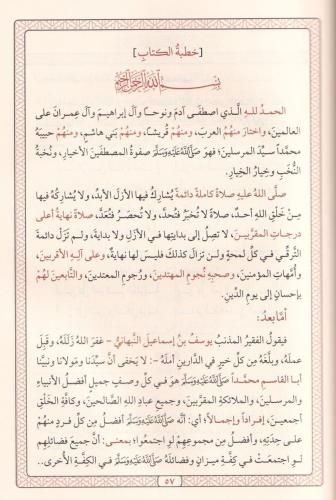 [ خطبةُ الكتابِ ]
بِسْمِ اللَّهِ الرَّحْمَنِ الرَّحِيمِ
الحمدُ للهِ الَّذي اصطفَى آدمَ ونوحاً وآلَ إبراهيمَ وآلَ عِمرانَ على
العالمينَ، واختارَ منهُمُ العربَ، ومنهُمْ قُريشاً، ومنهُمْ بَني هاشمٍ، ومنهُمْ حبيبَهُ
محمَّداً سيِّدَ المرسلينَ؛ فهوَ ﷺ صفوةُ المصطفَينَ الأخيارِ، ونُخبةُ
النُّخَبِ وخيارُ الخِيارِ.
صلَّى اللهُ عليهِ صلاةً كاملةً دائمةً يُشارِكُ فيها الأزلَ الأبدُ، ولا يُشارِكُهُ فيها
مِنْ خَلْقِ اللهِ أحدٌ، صلاةً لا تُخبَرُ فتُحدُّ، ولا تُحصَرُ فتُعدُّ، صلاةً نهايةُ أعلى
درجاتِ المقرَّبينَ، لا تصِلُ إلى بدايتِها في الأزلِ ولا بدايةَ، ولم تَزَلْ دائمةَ
التَّرقِّي في كلِّ لمحةٍ ولن تزالَ كذلكَ فليسَ لها نهايةٌ، وعلى آلِهِ الأقربينَ،
وأُمَّهاتِ المؤمنينَ، وصحبِهِ نُجومِ المهتدينَ، ورجومِ المعتدينَ، والتَّابعينَ لهُمْ
بإحسانٍ إلى يومِ الدِّينِ.
أمَّا بعدُ:
فيقولُ الفقيرُ المذنبُ يوسفُ بنُ إسماعيلَ النَّبهانيُّ - غفرَ اللهُ زَلَلَهُ، وقَبِلَ
عملَهُ، وبلَّغَهُ مِنْ كلِّ خيرٍ في الدَّارينِ أملَهُ -: لا يَخفَى أنَّ سيِّدَنا ومولانا ونبيَّنا
أبا القاسمِ محمَّداً ﷺ هوَ في كلِّ وصفٍ جميلٍ أفضلُ الأنبياءِ
والمرسلينَ، والملائكةِ المقرَّبينَ، وجميعِ عبادِ اللهِ الصَّالحينَ، وكافَّةِ الخَلْقِ
أجمعينَ، إفراداً وإجمالاً؛ أي: أنَّهُ ﷺ أفضلُ مِنْ كلِّ فردٍ منهُمْ
على حِدَتِهِ، وأفضلُ مِنْ مجموعِهِمْ لوِ اجتمعُوا؛ بمعنى: أنَّ جميعَ فضائلِهِمْ
لوِ اجتمعَتْ في كِفَّةِ ميزانٍ وفضائلُهُ ﷺ في الكِفَّةِ الأُخرى..
٥٧